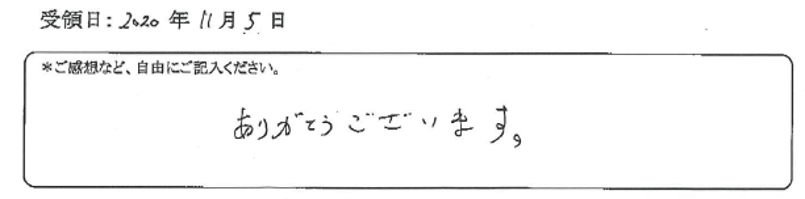 受領日：2020年11月5日
*ご感想など、自由にご記入ください。
ありがとうございます。